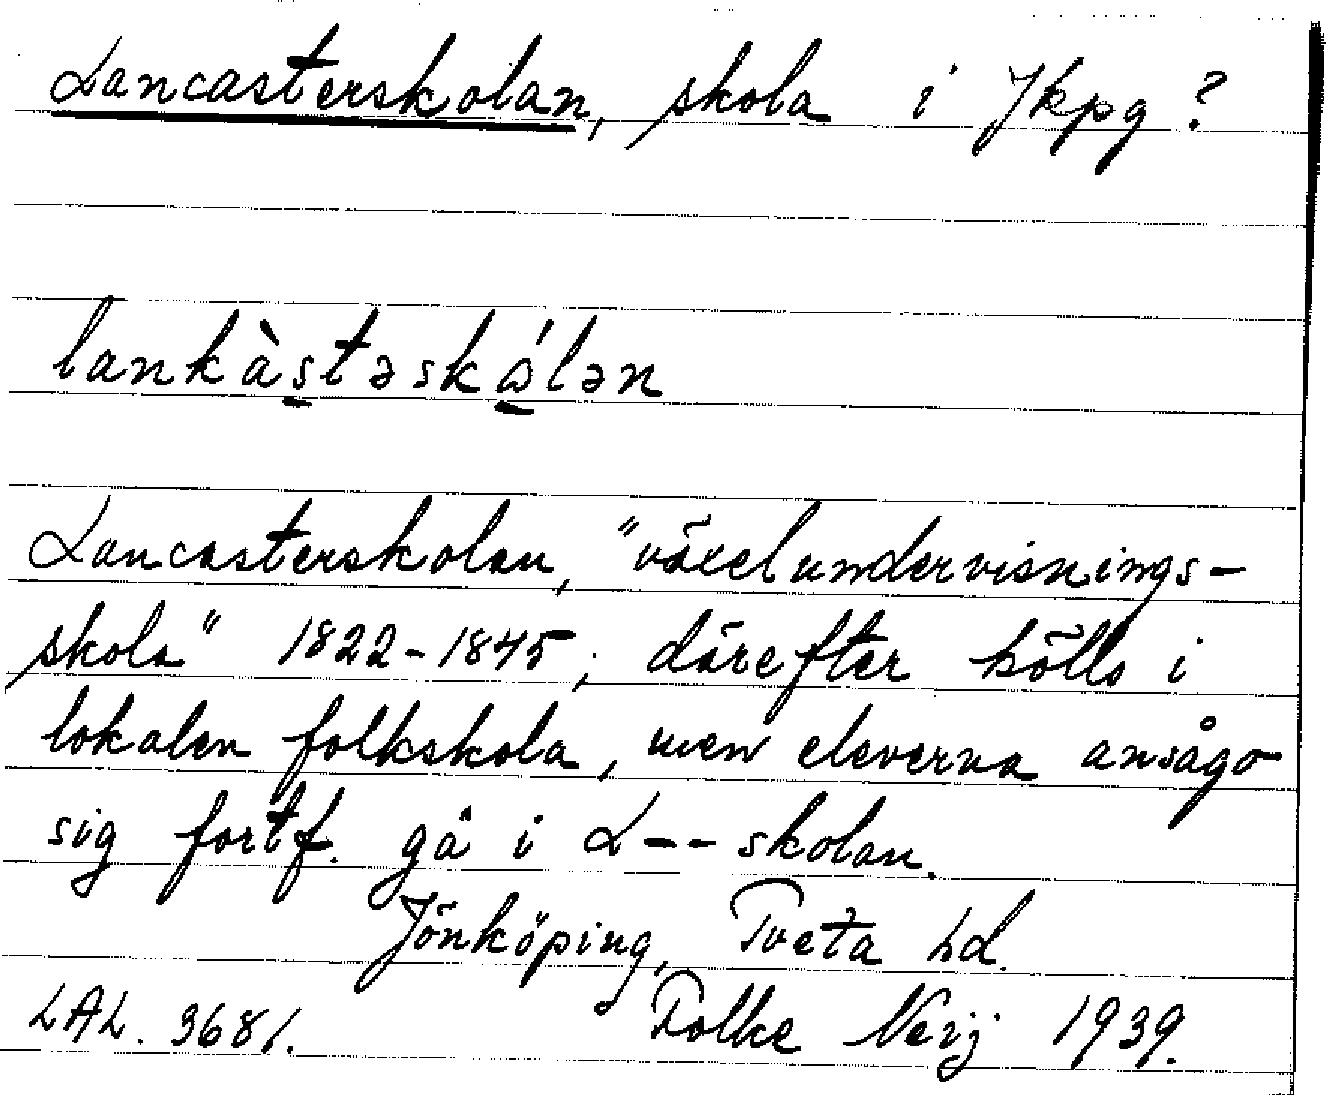 Lancasterskolan, skola i Jkpg?
lankàstəskɷ́lən
Lancasterskolan, "växelundervisnings-
skola" 1822-1845; därefter hölls i
lokalen folkskola, men eleverna ansågo
sig fortf. gå i L--skolan.
Jönköping, Tveta hd.
LAL. 3681. Folke Neij 1939.